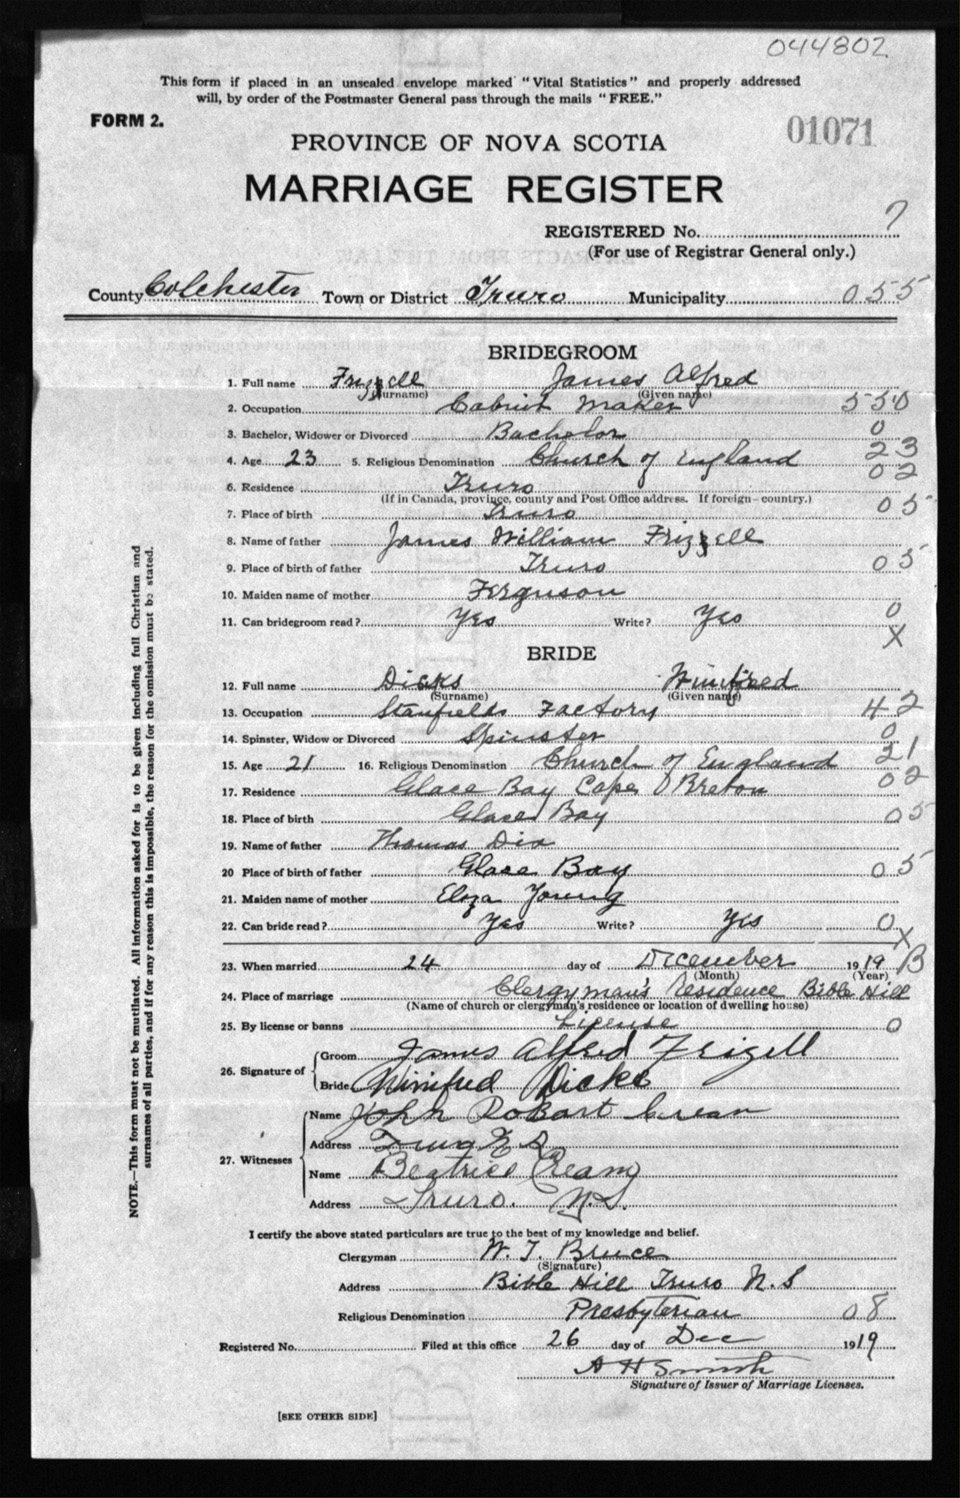 044802
This form if placed in an unsealed envelope marked "Vital Statistics" and properly addressed
will, by order of the Postmaster General pass through the mails "FREE."
FORM 2.
01071
PROVINCE OF NOVA SCOTIA
MARRIAGE REGISTER
REGISTERED No. 7
(For use of Registrar General only.)
County Colchester Town or District Truro Municipality 055
BRIDEGROOM
1. Full name Frizzell James Alfred
(Surname) (Given name)
2. Occupation Cabinet Maker 550
3. Bachelor, Widower or Divorced Bachelor 0
4. Age 23 5. Religious Denomination Church of England 23
02
6. Residence Truro
(If in Canada, province, county and Post Office address. If foreign—country.)
7. Place of birth Truro 05
8. Name of father James William Frizzell
9. Place of birth of father Truro 05
10. Maiden name of mother Ferguson
11. Can bridegroom read? Yes Write? Yes 0
X
BRIDE
12. Full name Dicks Winifred
(Surname) (Given name)
13. Occupation Stanfields Factory 42
14. Spinster, Widow or Divorced Spinster 0
15. Age 21 16. Religious Denomination Church of England 21
17. Residence Glace Bay Cape Breton 02
18. Place of birth Glace Bay 05
19. Name of father Thomas Dix
20 Place of birth of father Glace Bay 05
21. Maiden name of mother Eliza Young
22. Can bride read? Yes Write? Yes 0
X
23. When married 24 day of December 1919 B
(Month) (Year)
24. Place of marriage Clergyman's Residence Bible Hill
(Name of church or clergyman's residence or location of dwelling house)
25. By license or banns License 0
26. Signature of
Groom James Alfred Frizell
Bride Winifred Dicks
27. Witnesses
Name John Robart Crean
Address Truro N S
Name Beatrice Cream
Address Truro. N.S.
I certify the above stated particulars are true to the best of my knowledge and belief.
Clergyman W. T. Bruce
(Signature)
Address Bible Hill Truro N.S
Religious Denomination Presbyterian 08
Registered No. Filed at this office 26 day of Dec 1919
A H Smith
Signature of Issuer of Marriage Licenses.
[SEE OTHER SIDE]
NOTE.—This form must not be mutilated. All information asked for is to be given including full Christian and
surnames of all parties, and if for any reason this is impossible, the reason for the omission must be stated.